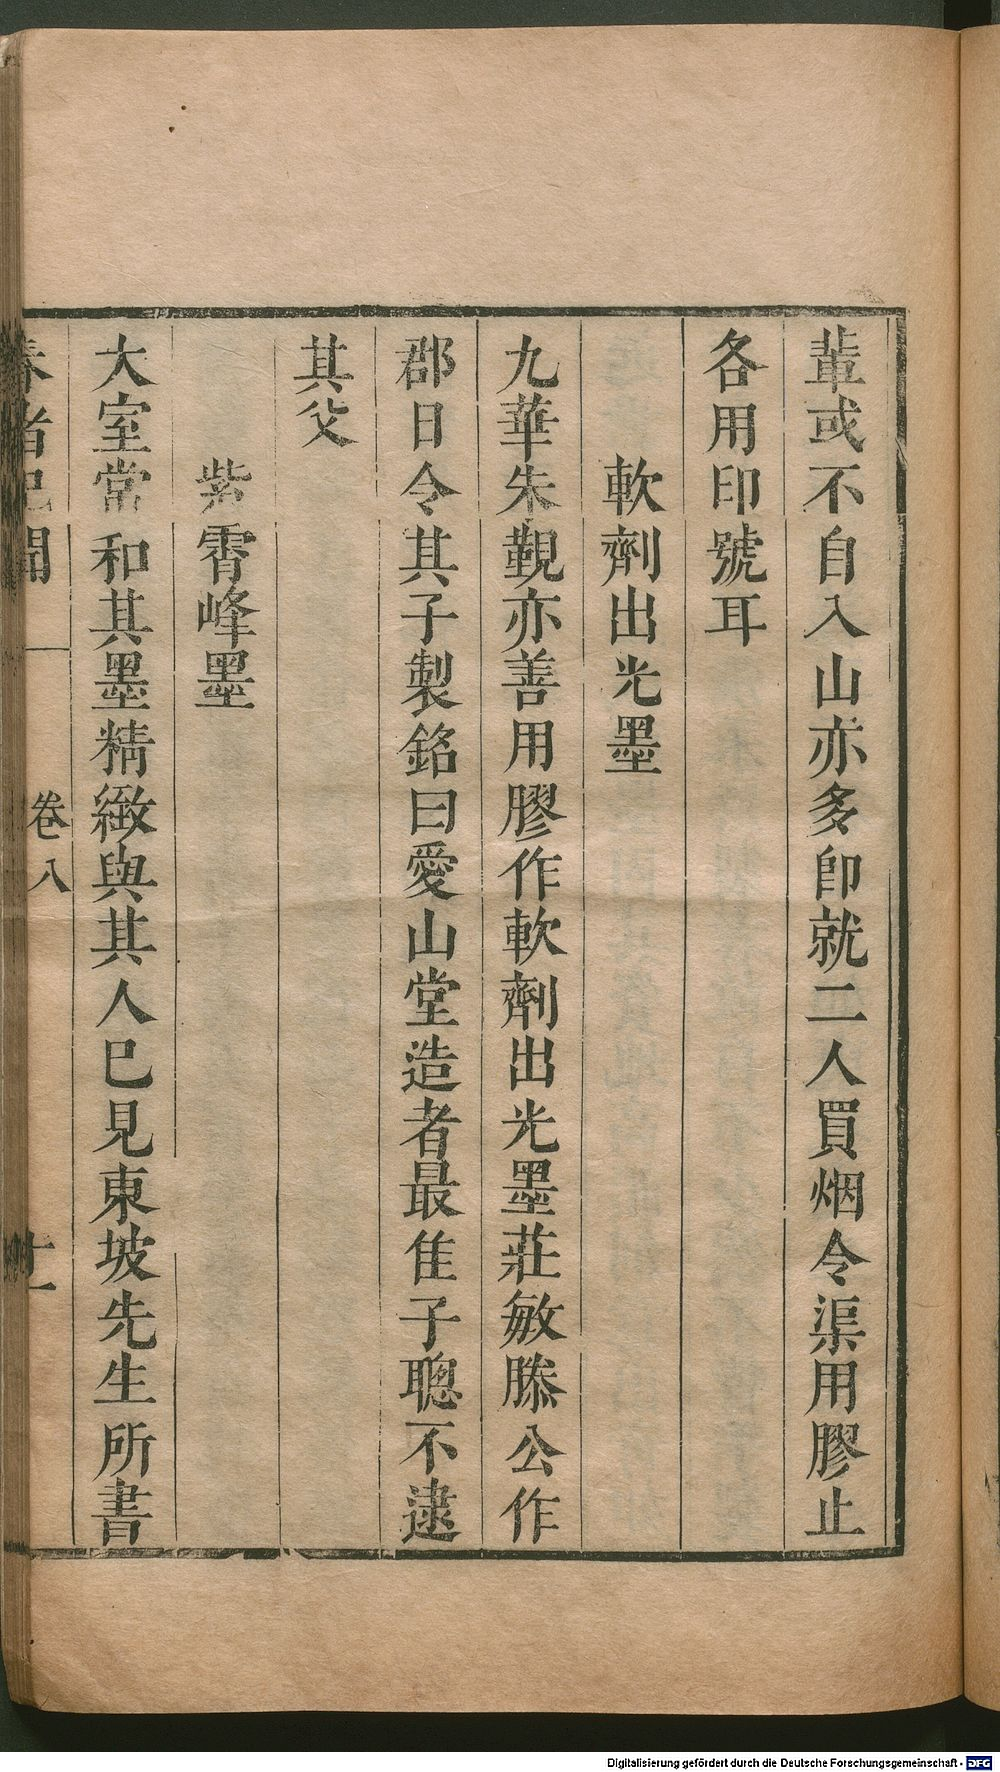 輩或不自入山亦多卽就二人買烟令渠用膠止
各用印號耳
軟劑出光墨
九華朱覲亦善用膠作軟劑出光墨莊敏滕公作
郡日令其子製銘曰愛山堂造者最佳子聰不逮
其父
紫霄峰墨
大室常和其墨精緻與其人已見東坡先生所書
春渚紀聞 卷八 十一
Digitalisierung gefördert durch die Deutsche Forschungsgemeinschaft - DFG